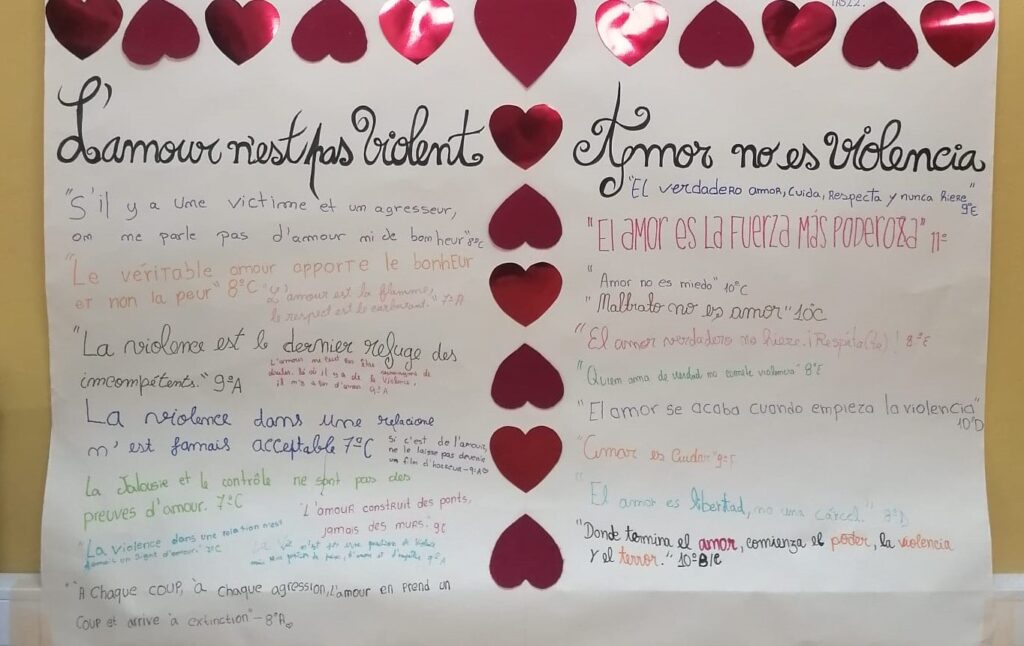 L'amour n'est pas Violent
"S'il y a une victime et un agresseur,
on me parle pas d'amour ni de bonheur" 8ºC
"Le véritable amour apporte le bonheur
et non la peur" 8ºC
"L'amour est la flamme,
le respect est le carburant." 7ºA
"La violence est le dernier refuge des
incompétents." 9ºA
La violence dans une relacione
n'est jamais acceptable 7ºC
Si c'est de l'amour,
ne le laisse pas devenir
un film d'horreur - 9ºA
La Jalousie et le contrôle ne sont pas des
preuves d'amour. 7ºC
"L'amour construit des ponts,
jamais des murs." 9C
"La violence dans une relation n'est
jamais un signe d'amour." 7ºC
"À chaque coup, à chaque agression, l'amour en prend un
coup et arrive à extinction" - 8ºA
Amor no es violencia
"El verdadero amor, cuida, respecta y nunca hiere" 9ºE
"El amor es la fuerza más poderosa" 11º
"Amor no es miedo" 10ºC
"Maltrato no es amor" 10ºC
"El amor verdadero no hiere. ¡Respéta(te)! 8ºE
"Quien ama de verdad no comete violencia" 8ºE
"El amor se acaba cuando empieza la violencia"
10ºD
"Amar es Cuidar" 9ºF
"El amor es libertad, no una cárcel." 8ºD
"Donde termina el amor, comienza el poder, la violencia
y el terror." 10º B/C